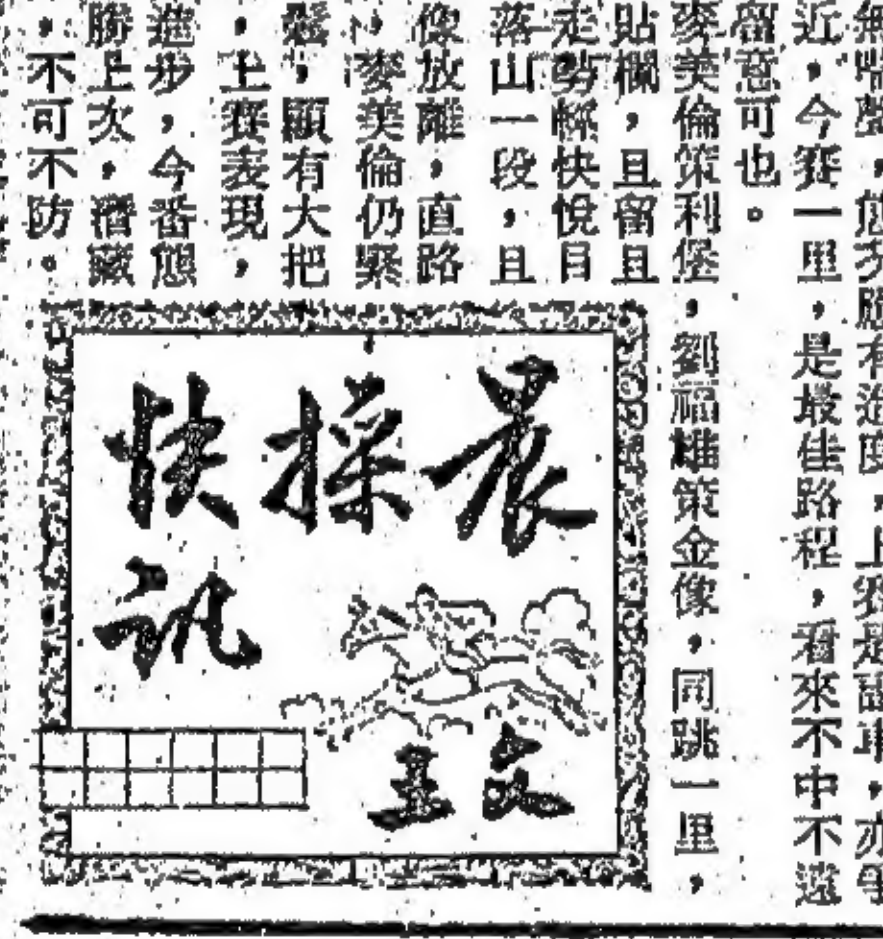 無喘聲,有進度,上賽是,亦爭
近,今賽一里,是最佳路程,看來不中不遠
留意可也。
麥美倫策利堡,劉福雄策金像,同跳一里,
貼欄,且留且
走勢輕快悅目
落山一段,且
像放離,直路
,麥美倫仍緊
,顯有大把
,上賽表現,
進步,今番態
勝上次,潛藏
,不可不防。
晨操快
訊
文王